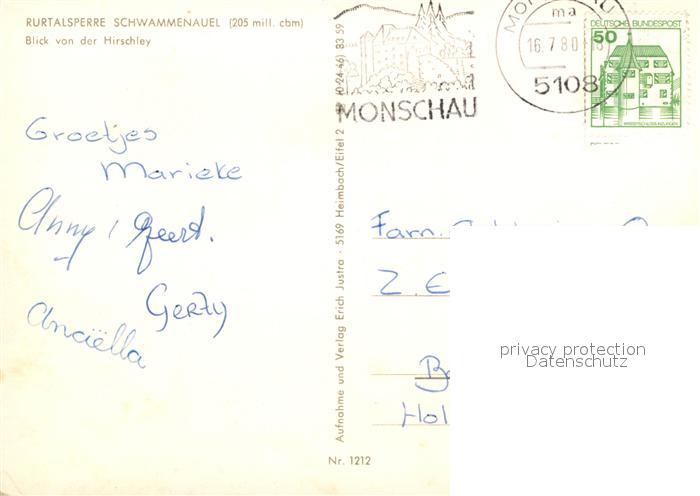 RURTALSPERRE SCHWAMMENAUEL (205 mill. cbm)
Blick von der Hirschley
Groetjes
Marieke
Anny, Geert.
Gerty
Anciëlla
Aufnahme und Verlag Erich Justra - 5169 Heimbach/Eifel 2 (0-24-46) 83 59
Nr. 1212
MONSCHAU
ma
16.7.80
5108
DEUTSCHE BUNDESPOST
50
WASSERSCHLOSS INZLINGEN
Fam.
Z. E
Hol
privacy protection
Datenschutz